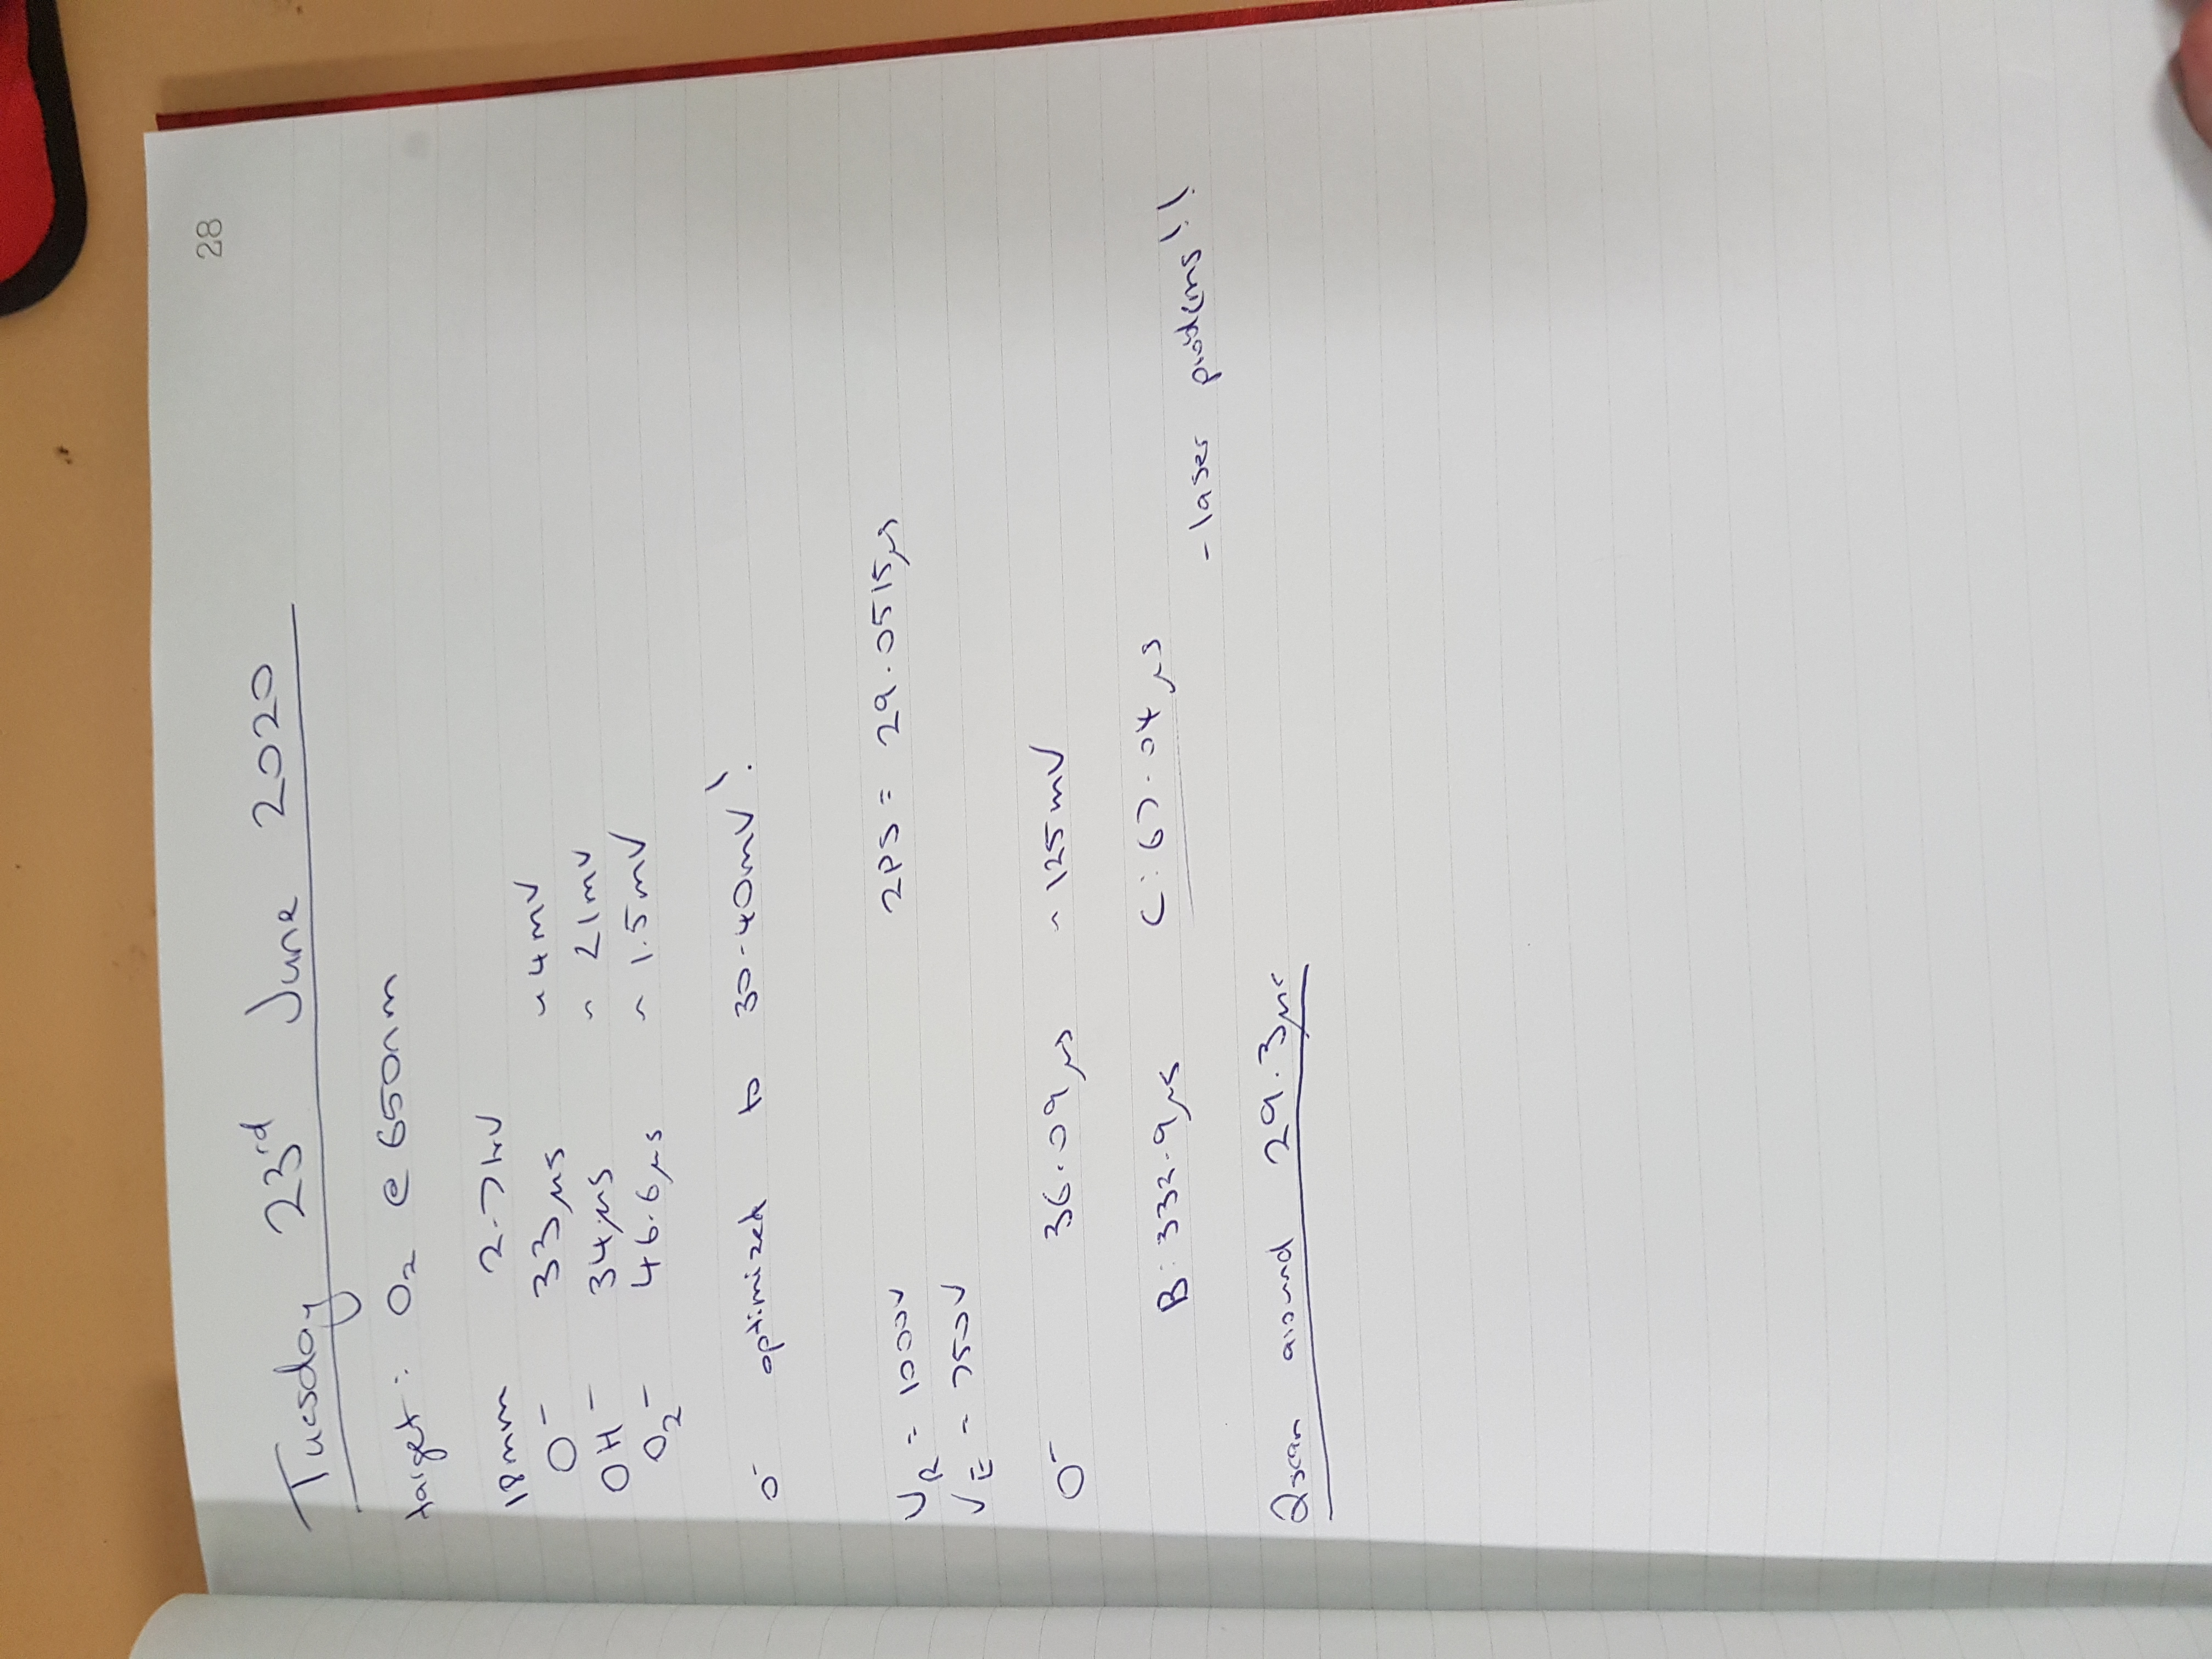 28
Tuesday 23rd June 2020
target: O2 @ 650nm
18mm 2.7kV
O⁻ 33μs ~ 4mV
OH⁻ 34μs ~ 21mV
O2⁻ 46.6μs ~ 1.5mV
O⁻ optimized to 30-40mV!
VR = 1000V 2PS = 29.0515μs
VE = 750V
O⁻ 36.09μs ~ 125mV
B: 332.9μs C: 67.04μs
- laser problems!!
Qscan around 29.3μs